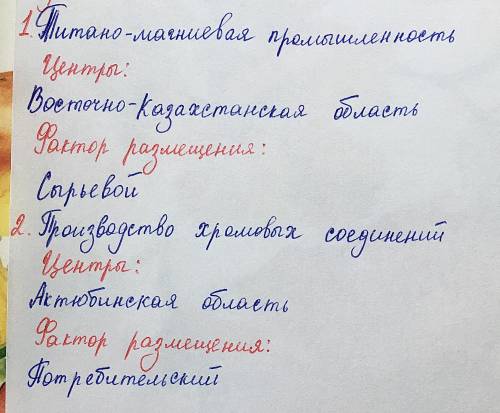 1. Титано-магниевая промышленность
Центры:
Восточно-Казахстанская область
Фактор размещения:
Сырьевой
2. Производство хромовых соединений
Центры:
Актюбинская область
Фактор размещения:
Потребительский